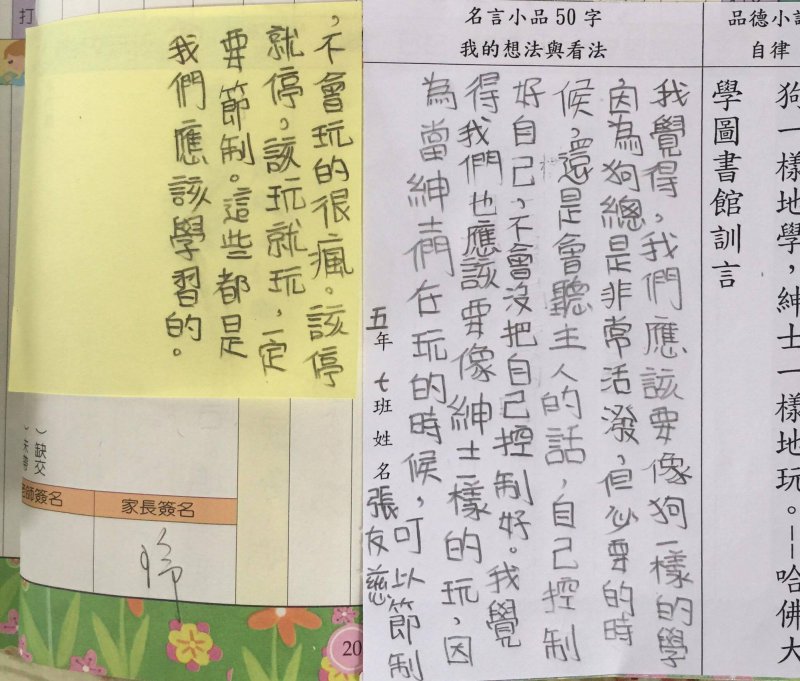 品德小
自律
狗一樣地學，紳士一樣地玩。--哈佛大
學圖書館訓言
名言小品50字
我的想法與看法
我覺得，我們應該要像狗一樣的學
因為狗總是非常活潑，但必要的時
候，還是會聽主人的話，自己控制
好自己，不會沒把自己控制好。我覺
得我們也應該要像紳士一樣的玩，因
為當紳士們在玩的時候，可以節制
五年七班姓名張友慈
，不會玩的很瘋。該停
就停，該玩就玩，一定
要節制。這些都是
我們應該學習的。
打
缺交
師簽名
家長簽名
20